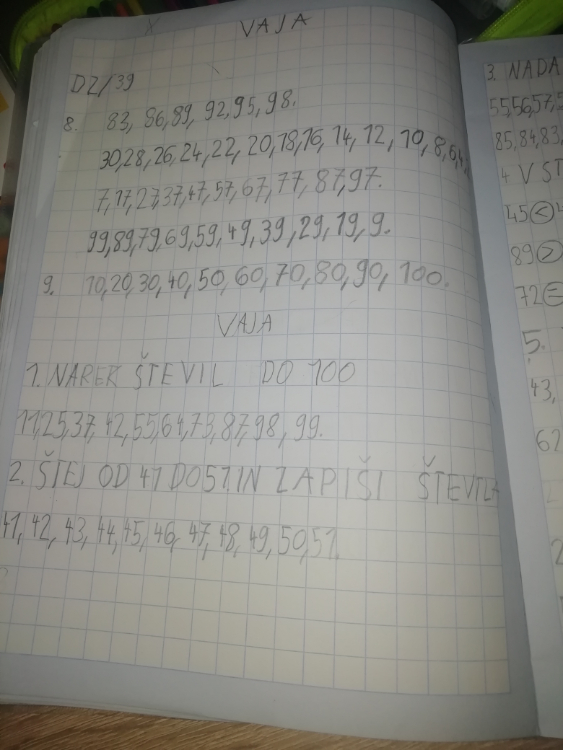 VAJA
DZ/39
8. 83, 86, 89, 92, 95, 98.
30, 28, 26, 24, 22, 20, 18, 16, 14, 12, 10, 8, 6, 4,
7, 17, 27, 37, 47, 57, 67, 77, 87, 97.
99, 89, 79, 69, 59, 49, 39, 29, 19, 9.
9. 10, 20, 30, 40, 50, 60, 70, 80, 90, 100.
VAJA
1. NAREK ŠTEVIL DO 100
11, 25, 37, 42, 55, 64, 73, 87, 98, 99.
2. ŠTEJ OD 41 DO 51. IN ZAPIŠI ŠTEVILA
41, 42, 43, 44, 45, 46, 47, 48, 49, 50, 51.
3. NADA
55, 56, 57, 5
85, 84, 83,
4 V ST
45 <
89 >
72 =
5.
43,
62